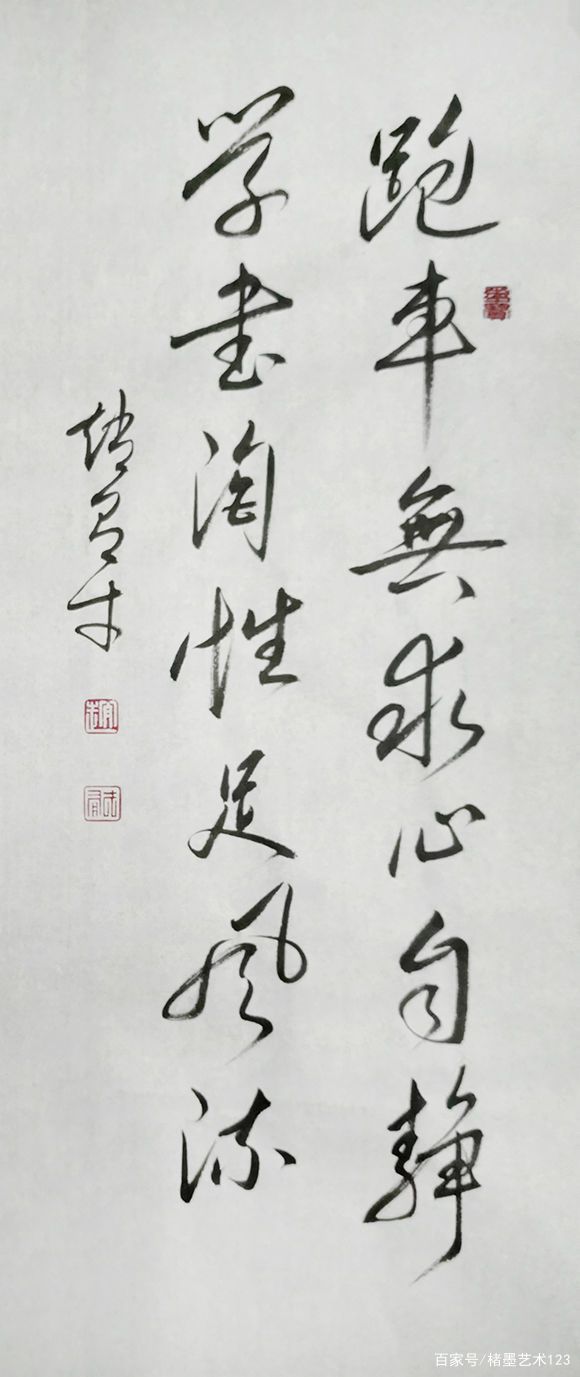 跑车無求心自静
学书淘性足风流
百家号/楮墨艺术123